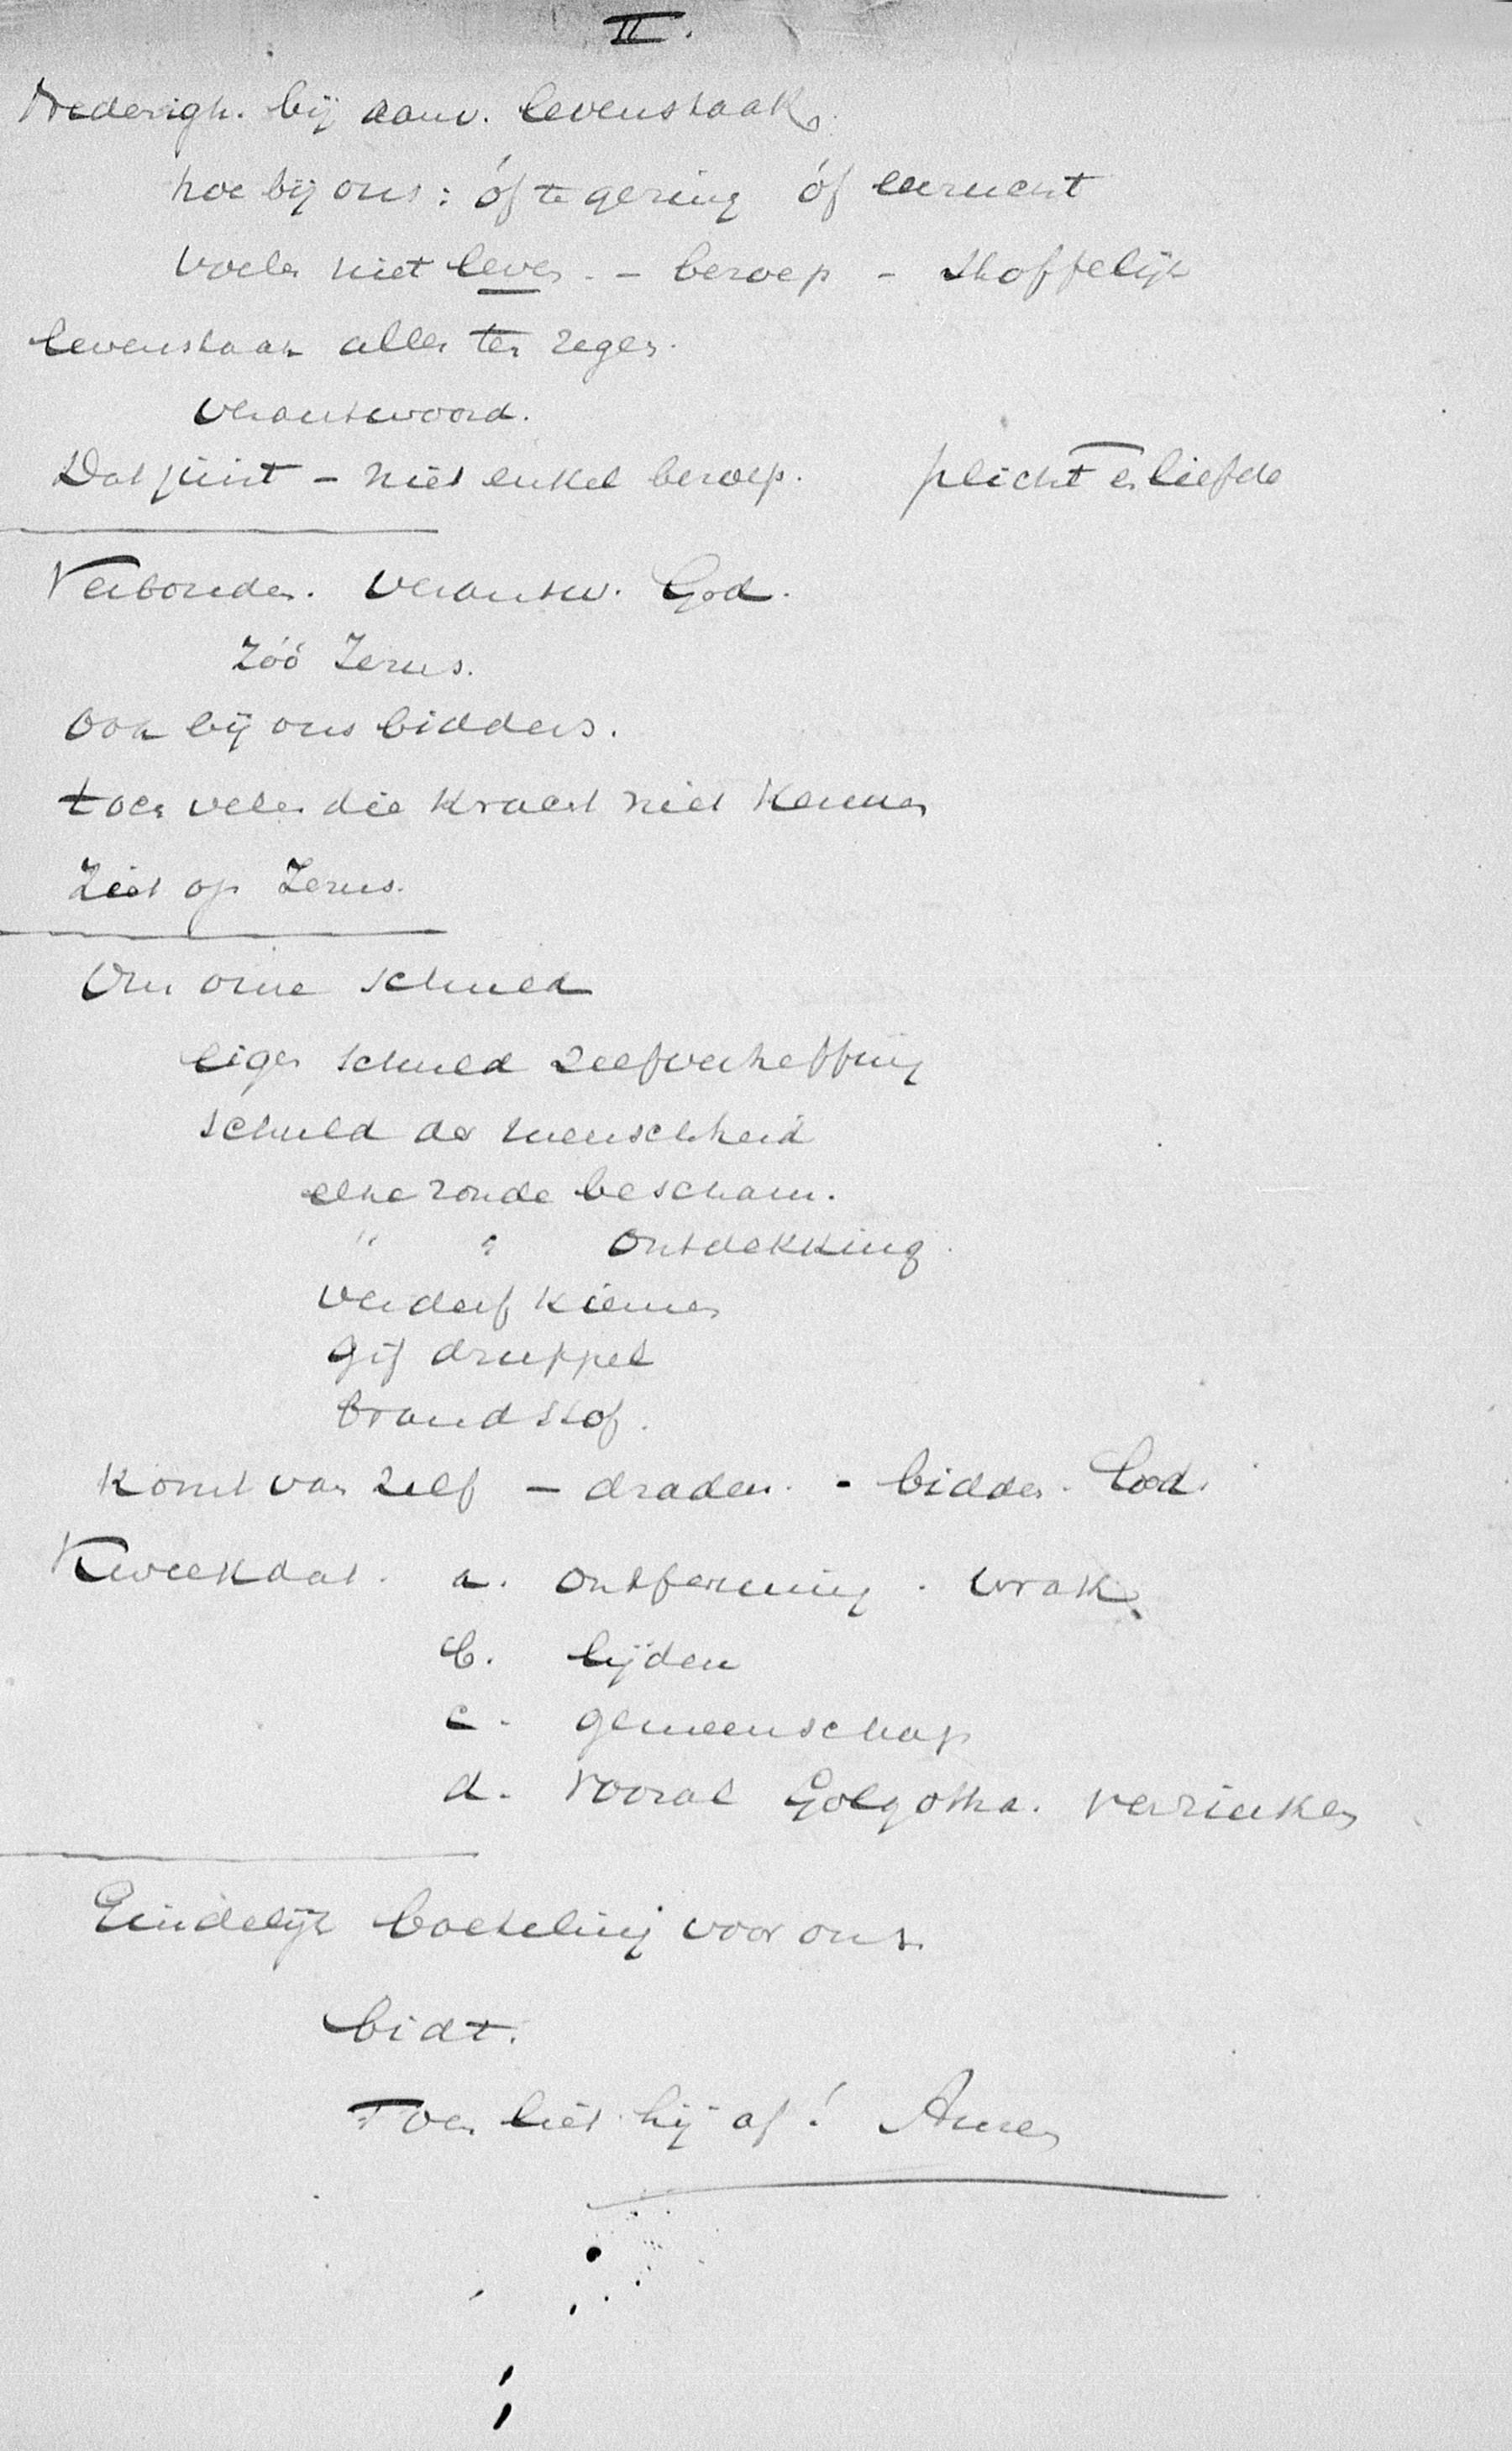 II.
Nederigh. bij aanv. levenstaak
hoe bij ons: óf te gering óf eerzucht
voelen niet leven - beroep - stoffelijk
levenstaak alles ten zegen.
verantwoord.
Dat juist - niet enkel beroep. plicht en liefde
Verbonden. verantw. God.
Zóó Jezus.
Ook bij ons bidders.
toen velen die kracht niet kennen
Ziet op Jezus.
Om onze schuld
eigen schuld zelfverheffing
schuld der menschheid
elke zonde bescham.
" " ontdekking.
verderf kiemen
gif druppel
brandstof.
Komt van zelf - draden. - bidden. God.
Kweekt dat. a. ontferming. wrak.
b. lijden
c. gemeenschap
d. vooral Golgotha. verzinken
Eindelijk boeteling voor ons.
bidt.
Toen liet hij af! Amen